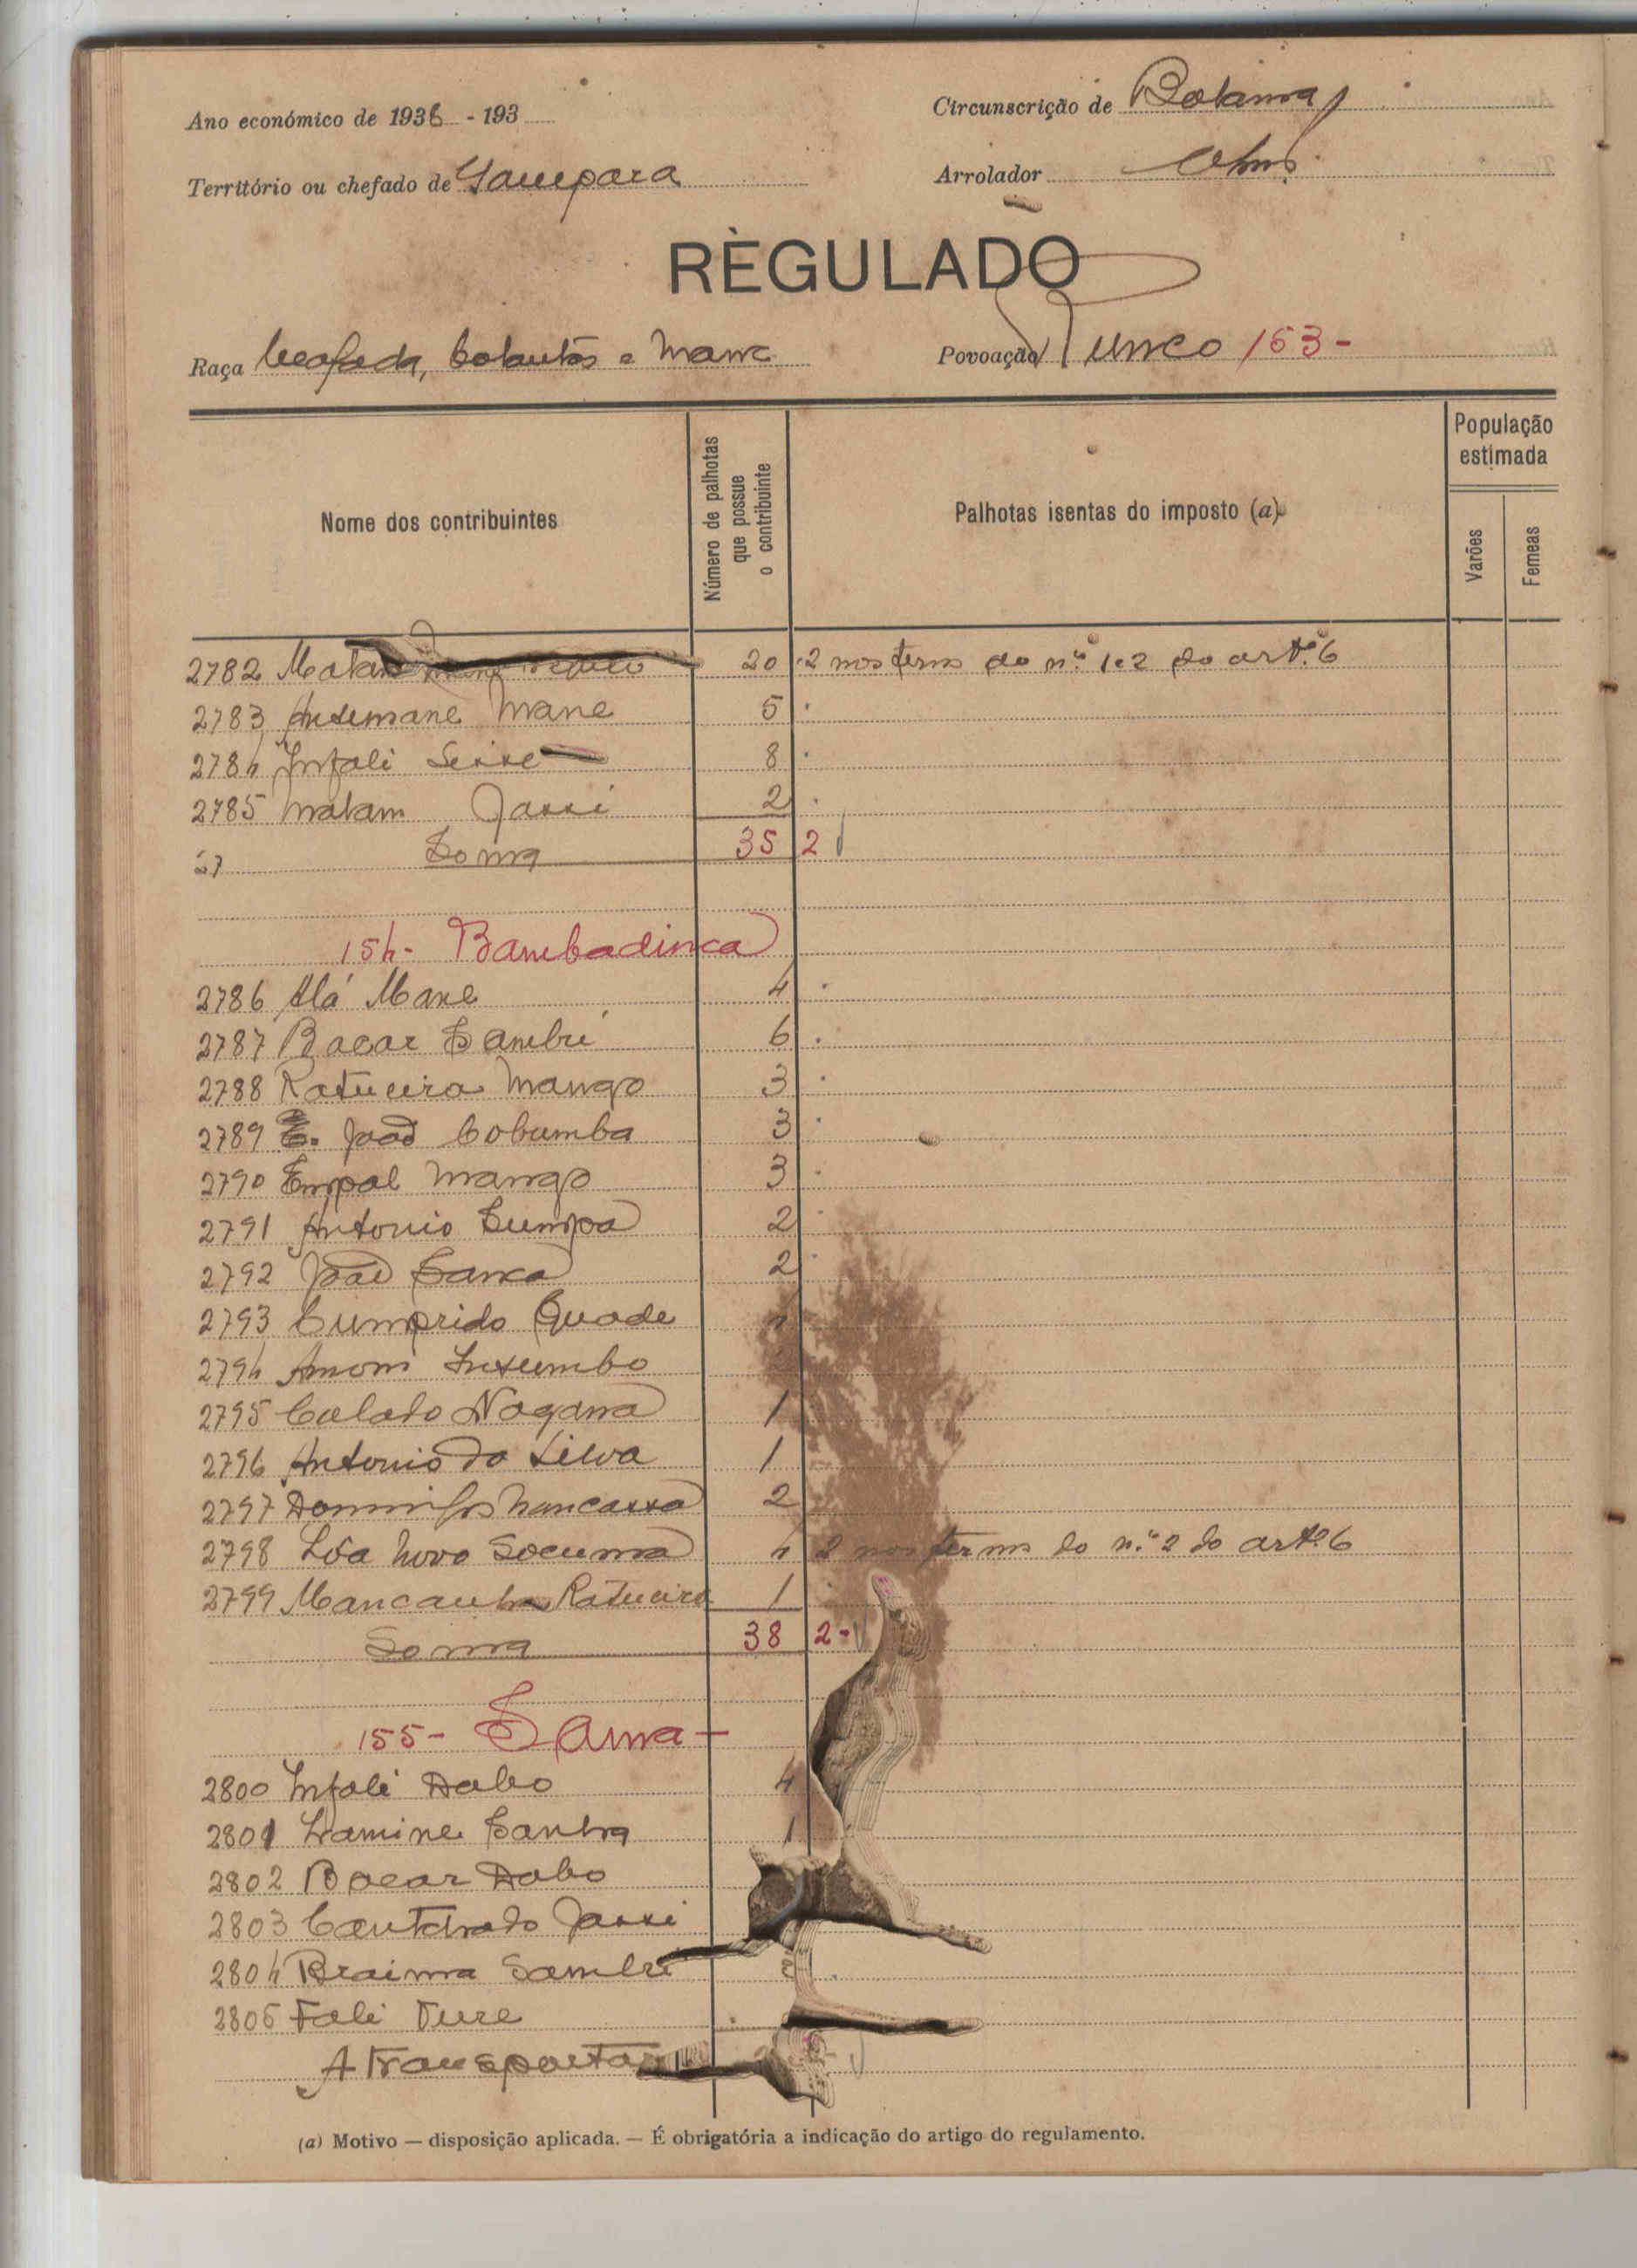 Ano económico de 1936 - 193
Circunscrição de Bolama
Território ou chefado de Gampara
Arrolador
REGULADO
Raça Beafada, balantas e manc
Povoação Junco 153-
Nome dos contribuintes
Número de palhotas que possue o contribuinte
Palhotas isentas do imposto (a)
População estimada
Varões
Femeas
2782 20 2 nos termos do n.os 1 e 2 do art.º 6
2783 Ansumane Mane 5
2784 Infali Seixe 8
2785 Malam Jassi 2
57 Soma 35 2
154- Bambadinca
2786 Alá Mane 4
2787 Bacar Sambú 6
2788 Ratueira Mango 3
2789 João Cobumba 3
2790 Empal Mango 3
2791 Antonio Sumpa 2
2792 João Sanca 2
2793 Cumprido Quade
2794 Amoni Insumbo
2795 Calado Nagana 1
2796 Antonio da Silva 1
2797 Domingos Mancassa 2
2798 Lôa Novo Socuma 4 2 nos termos do n.º 2 do art.º 6
2799 Mancanha Ratueira 1
Soma 38 2-
155- Sama-
2800 Infali Dabo 4
2801 Lamine Sanha 1
2802 Bacar Dabo
2803 Jassi
2804 Braima Sambú
2805 Fali Ture
A transportar
(a) Motivo — disposição aplicada. — É obrigatória a indicação do artigo do regulamento.